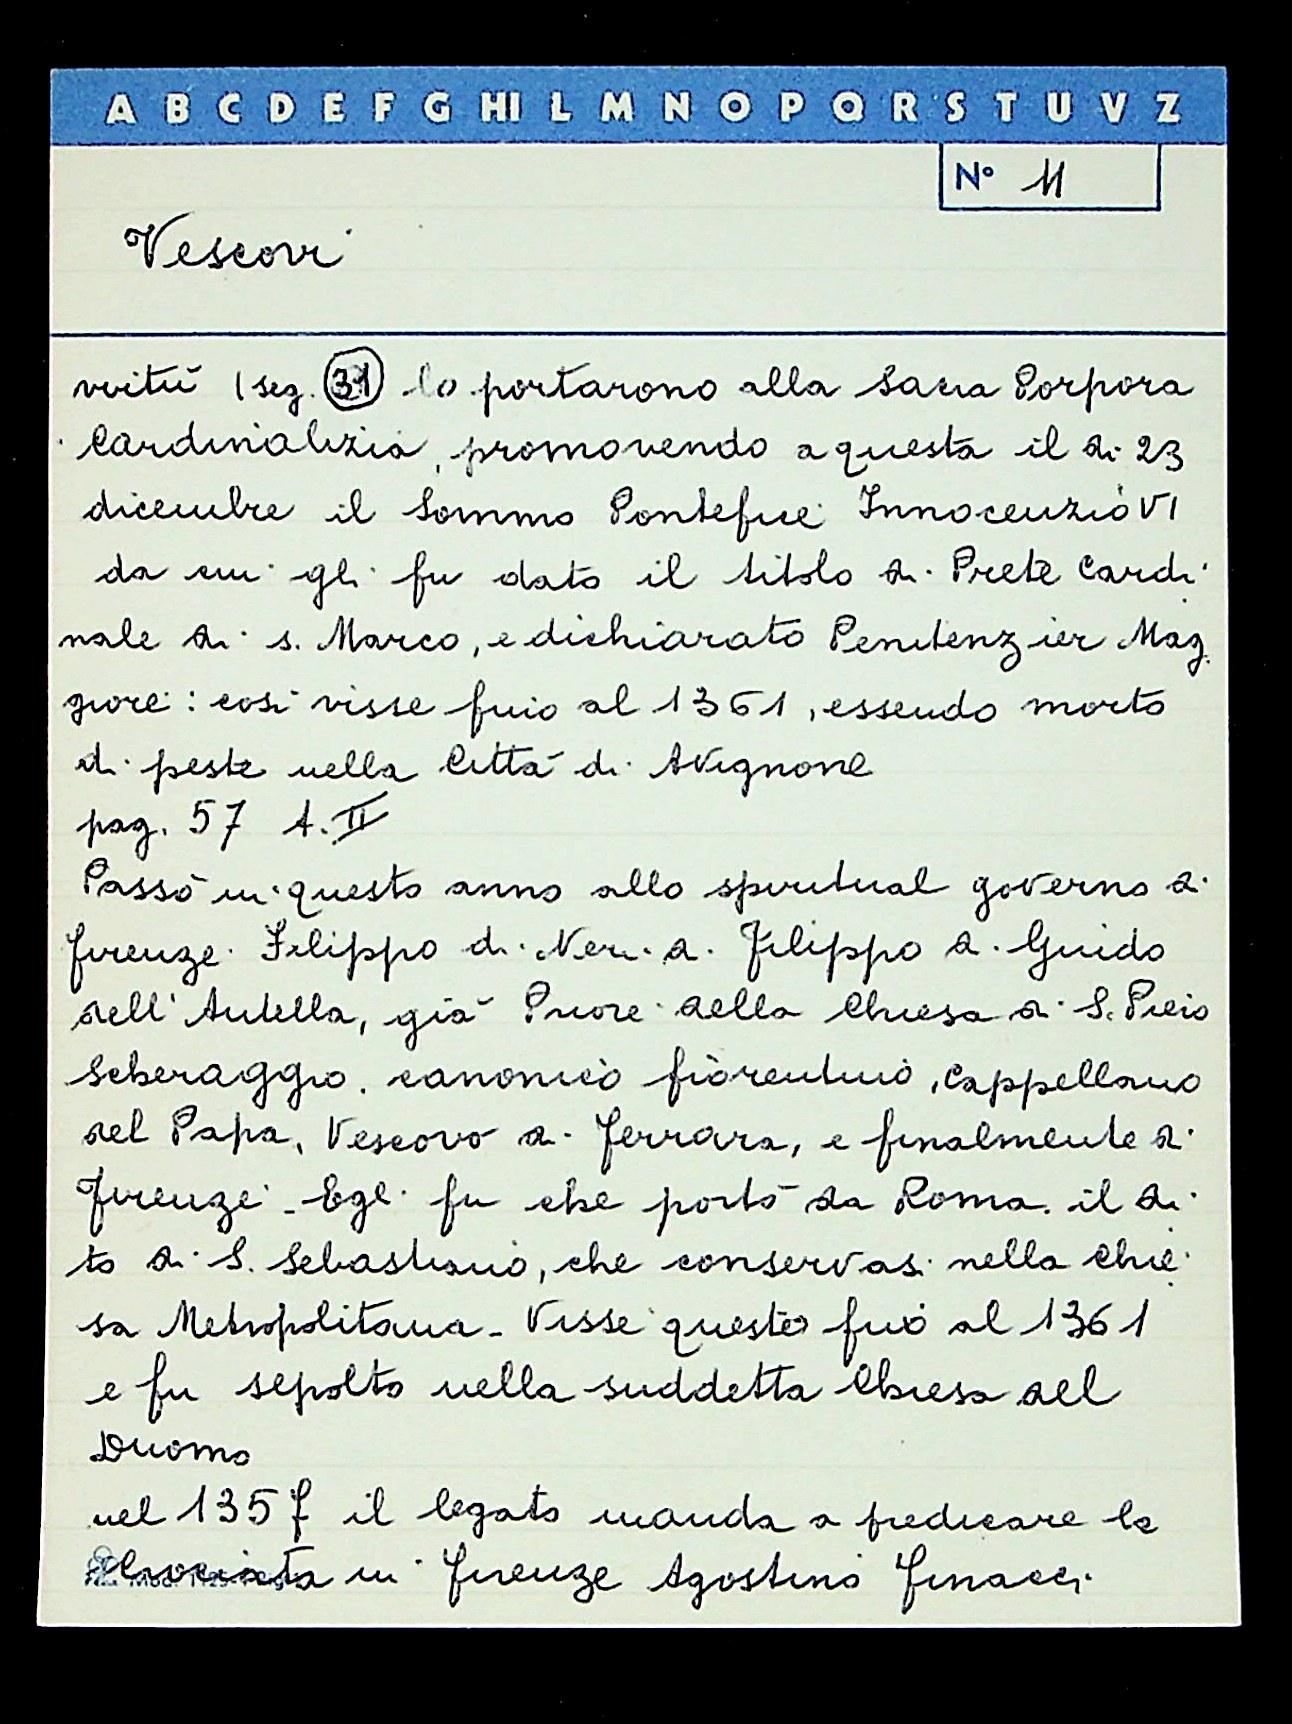 A B C D E F G HI L M N O P Q R S T U V Z
N° 11
Vescovi
virtù (seg. 31 lo portarono alla Sacra Porpora
Cardinalizia, promovendo a questa il di 23
dicembre il Sommo Pontefice Innocenzio VI
da cui gli fu dato il titolo di Prete Cardi
nale di s. Marco, e dichiarato Penitenzier Mag
giore: così visse fino al 1361, essendo morto
di peste nella Città di Avignone
pag. 57 t. II
Passò in questo anno allo spiritual governo di
Firenze Filippo di Neri di Filippo di Guido
dell'Antella, già Priore della Chiesa di S. Piero
Scheraggio, canonico fiorentino, Cappellano
del Papa, Vescovo di Ferrara, e finalmente di
Firenze - Egli fu che portò da Roma il di
to di S. Sebastiano, che conservasi nella Chie
sa Metropolitana - Visse questo fino al 1361
e fu sepolto nella suddetta Chiesa del
Duomo
nel 1357 il legato manda a predicare la
Crociata in Firenze Agostino Finacci